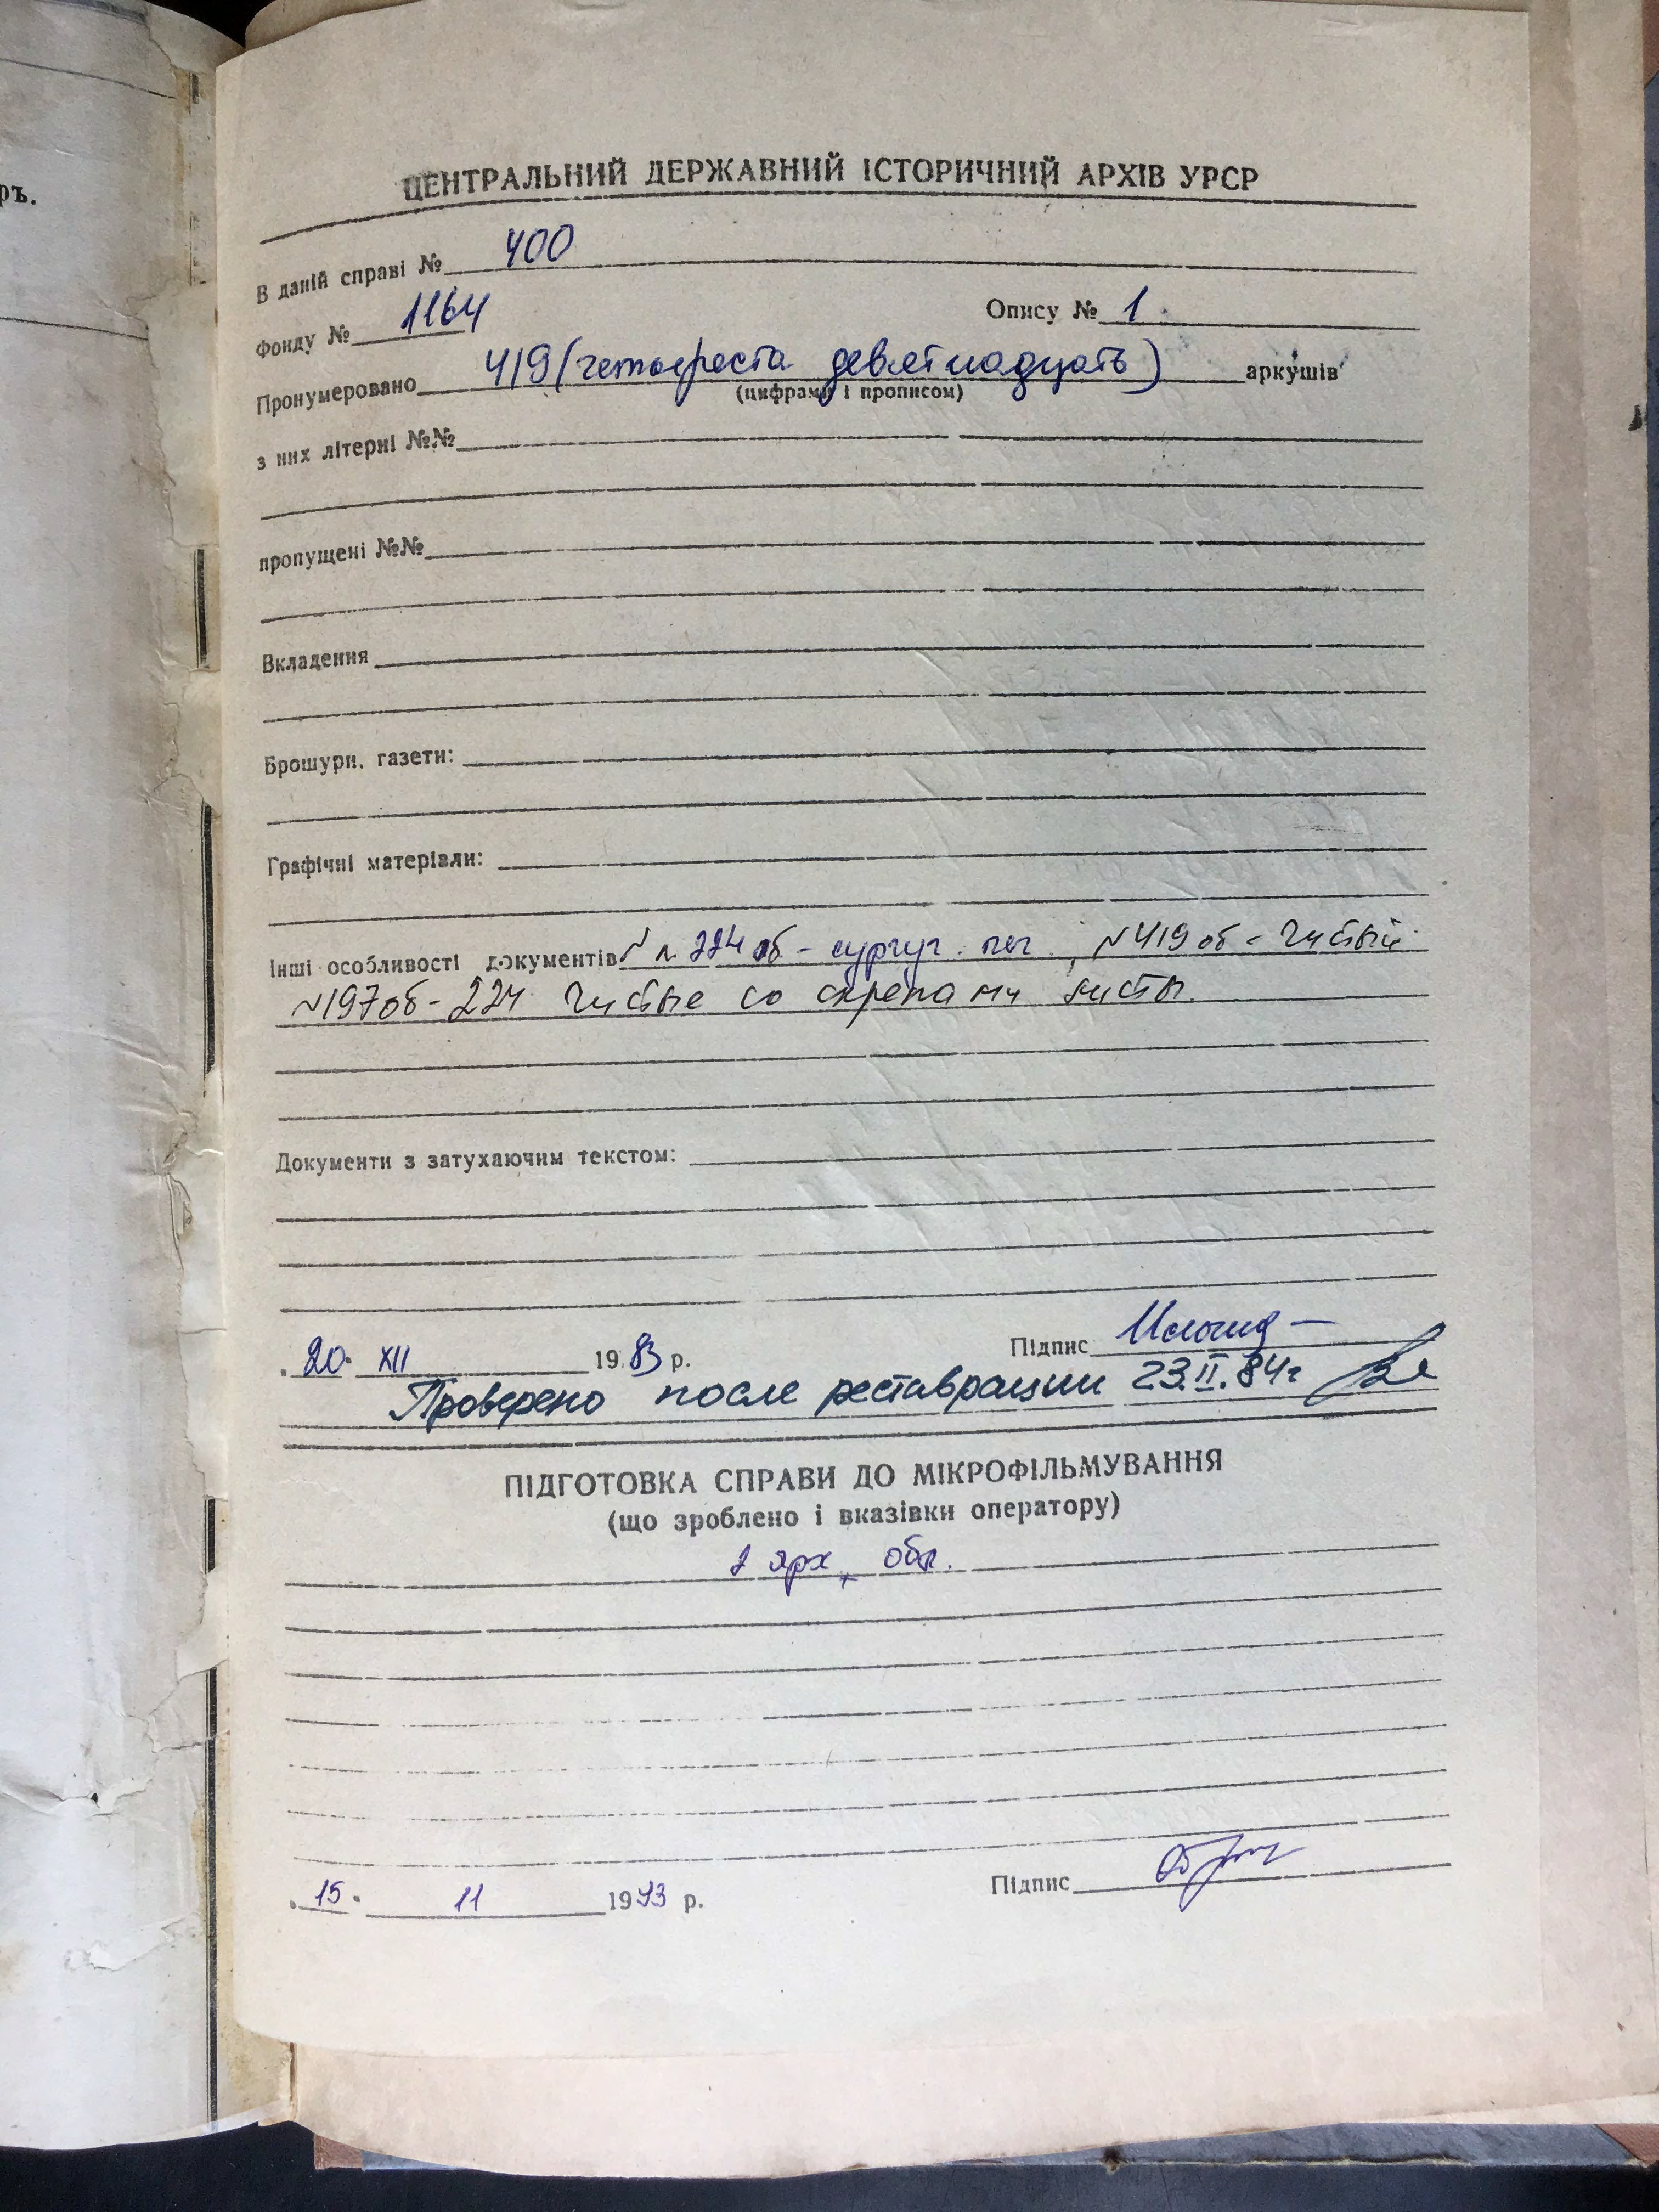 ръ.
ЦЕНТРАЛЬНИЙ ДЕРЖАВНИЙ ІСТОРИЧНИЙ АРХІВ УРСР
В даній справі № 400
Фонду № 1164 Опису № 1.
Пронумеровано 419 (четыреста девятнадцать) аркушів
(цифрами і прописом)
з них літерні №№
пропущені №№
Вкладення
Брошури, газети:
Графічні матеріали:
Інші особливості документів N л. 224 об - сургуч. печ., N419 об - Чистый
N197об - 224 Чистые со скрепами листы.
Документи з затухаючим текстом:
20. XII 1983 р. Підпис
Проверено после реставрации 23.II.84г
ПІДГОТОВКА СПРАВИ ДО МІКРОФІЛЬМУВАННЯ
(що зроблено і вказівки оператору)
арх обл.
15. 11 1993 р. Підпис